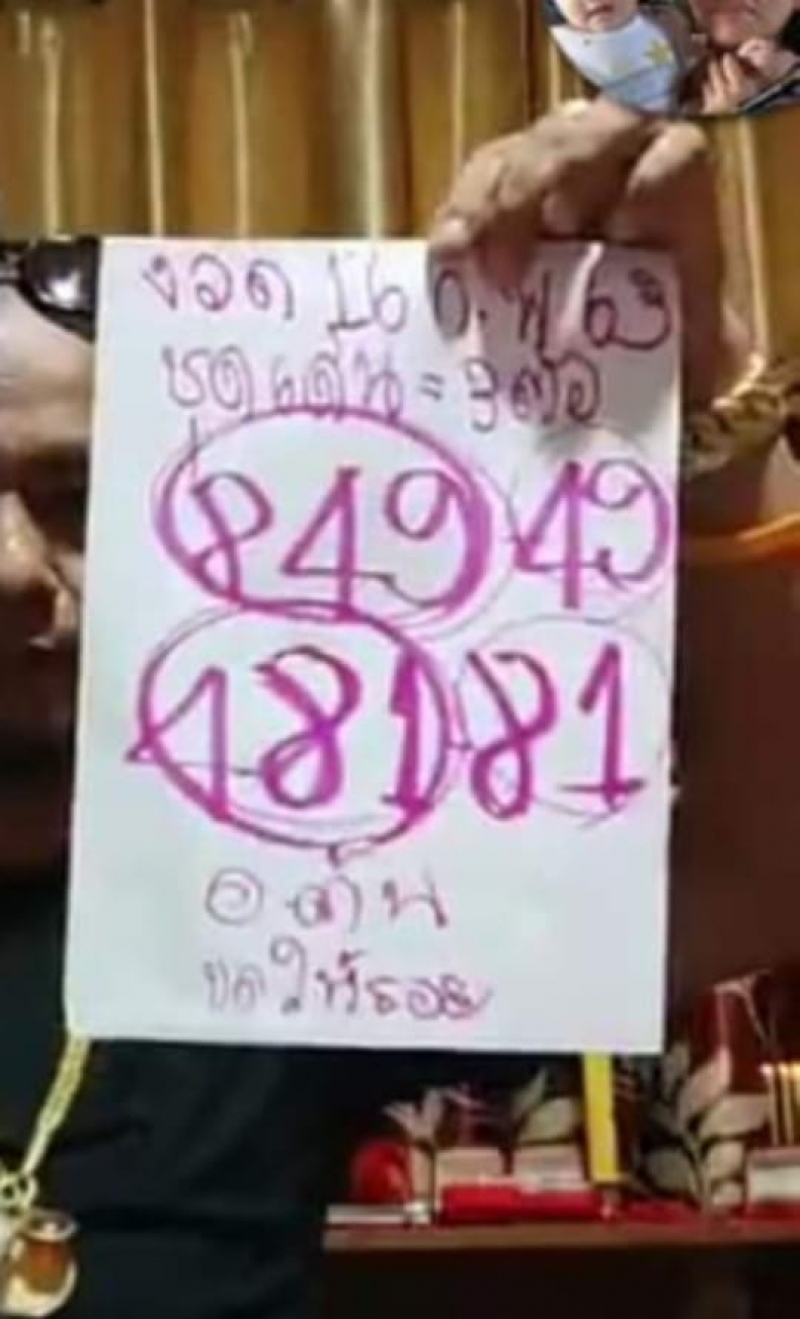 งวด 16 ก.พ 63
ชุดเด่น = 3 ตัว
849 49
181 81
อ ตั้น
ขอให้รวย